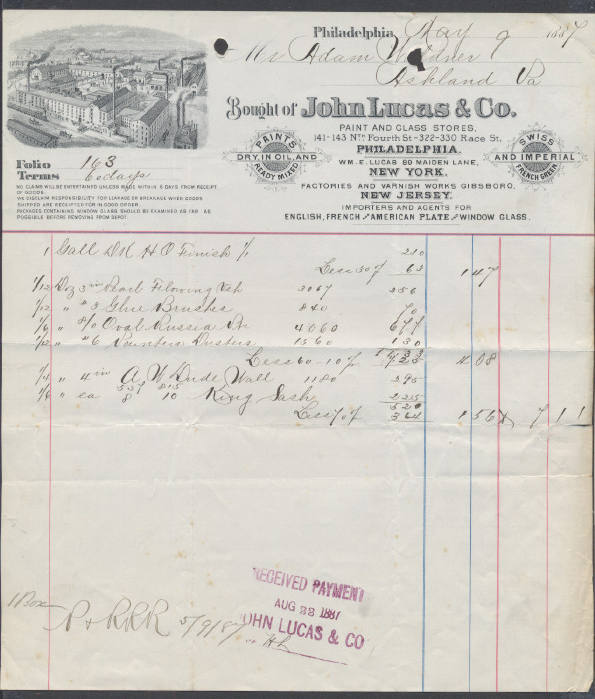 Philadelphia, May 9 1887
Mr Adam
Ashland Pa
Bought of John Lucas & Co.
PAINT AND GLASS STORES,
141-143 Nth Fourth St-322-330 Race St.
PHILADELPHIA.
WM. E. LUCAS 89 MAIDEN LANE,
NEW YORK.
FACTORIES AND VARNISH WORKS GIBSBORO,
NEW JERSEY.
IMPORTERS AND AGENTS FOR
ENGLISH, FRENCH AND AMERICAN PLATE AND WINDOW GLASS.
PAINTS
DRY, IN OIL, AND
READY MIXED
SWISS
AND IMPERIAL
FRENCH GREEN
Folio 163
Terms 60 days
NO CLAIMS WILL BE ENTERTAINED UNLESS MADE WITHIN 5 DAYS FROM RECEIPT
OF GOODS.
WE DISCLAIM RESPONSIBILITY FOR LEAKAGE OR BREAKAGE WHEN GOODS
SHIPPED ARE RECEIPTED FOR IN GOOD ORDER.
PACKAGES CONTAINING WINDOW GLASS SHOULD BE EXAMINED AS FAR AS
POSSIBLE BEFORE REMOVING FROM DEPOT.
1 Gall H O Finish 1/1 210
Less 30% 63 147
1/12 Doz 3 in Flowing 3067 256
1/12 " #3 Glue Brushes 840 70
1/6 " 8/0 Oval Russia 4060 677
1/12 " #6 Painters Dusters 1560 130
Less 60-10% 408
1/4 " 4 in A W Dude Wall 1180 295
1/6 " ea 8 10 King Sash 225
520
Less 70% 364 156 711
RECEIVED PAYMENT
AUG 22 1887
JOHN LUCAS & CO
1 Box
P & RRR 5/9/87